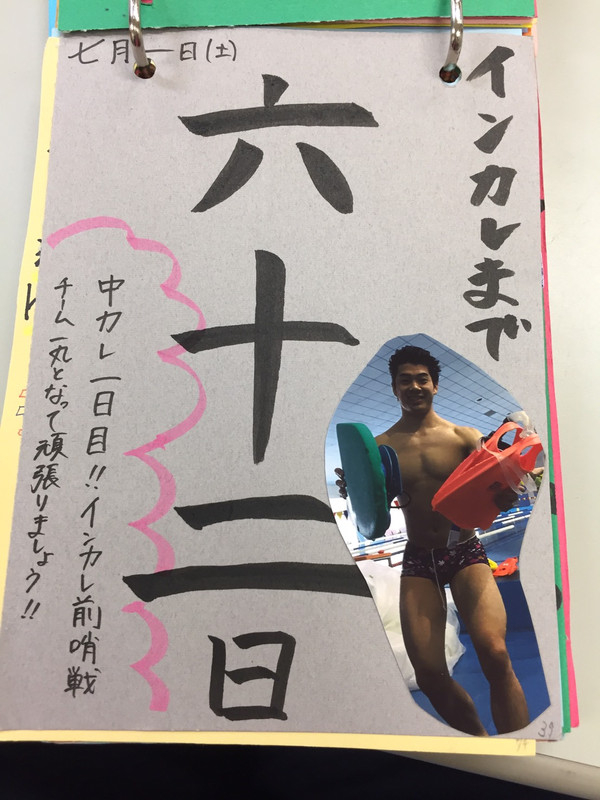 七月一日(土)
インカレまで
六十二日
中カレ一日目!!インカレ前哨戦
チーム一丸となって頑張りましょう!!